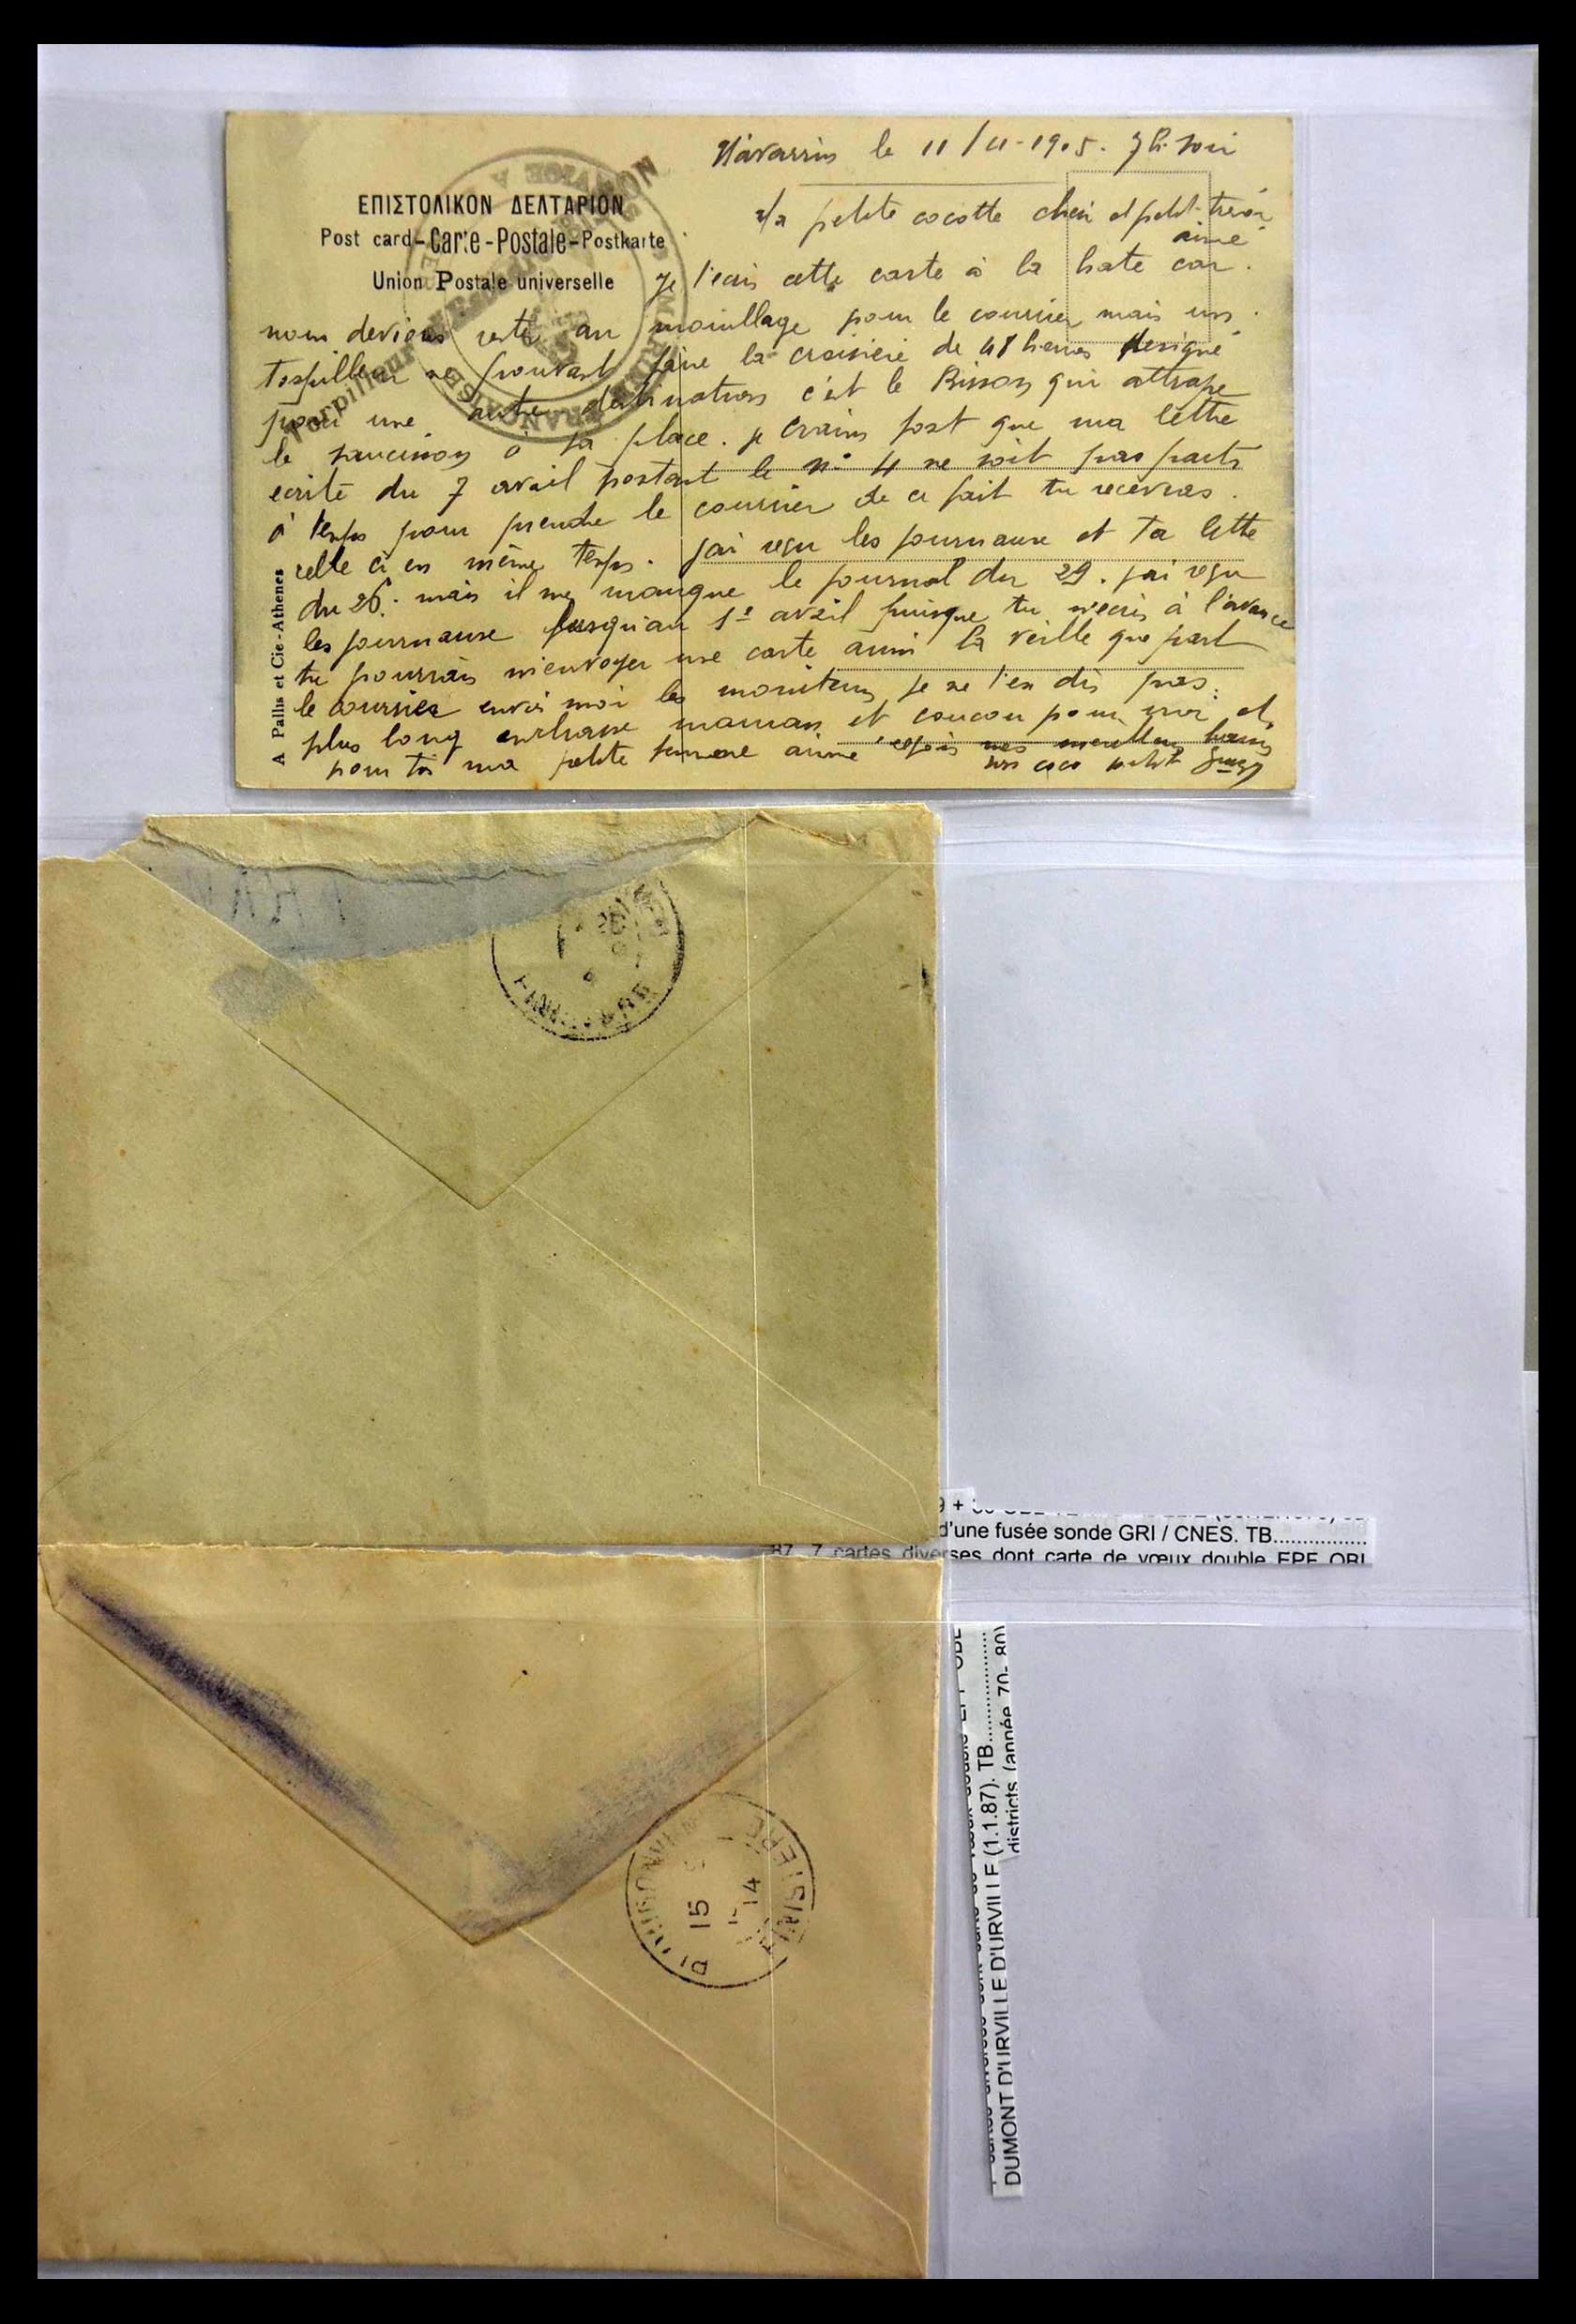 Navarrin le 11/4-1905. 7h. soir
ΕΠΙΣΤΟΛΙΚΟΝ ΔΕΛΤΑΡΙΟΝ
Post card-Carte-Postale-Postkarte
Union Postale universelle
Ma petite cocotte cheri et petit tresor
aimé
Je t'ecris cette carte à la hate car
nous devions resté au mouillage pour le courrier mais un
torpilleur ne pouvant faire la croisière de 48 heures designé
pour une autre destination c'est le Bisson qui attrape
le saucisson à sa place. je crains fort que ma lettre
ecrite du 7 avril portant le n° 4 ne soit pas parti
à temps pour prendre le courrier de ce fait tu recevras
celle ci en même temps. j'ai reçu les journaux et ta lettre
du 26. mais il me manque le journal du 29. j'ai reçu
les journaux jusqu'au 1er avril puisque tu m'ecris à l'avance
tu pourrais m'envoyer une carte aussi la veille que part
le courrier envoi moi les moniteurs je ne t'en dis pas
plus long embrasse maman et coucou pour moi et
pour toi ma petite femme aimé reçois mes meilleurs baisers
ton coco petit
A Pallis et Cie-Athènes
Torpilleur
MARINE FRANÇAISE
SERVICE A LA MER
FINISTERE
15
14
FINISTERE
d'une fusée sonde GRI / CNES. TB................
87. 7 cartes diverses dont carte de vœux double EPF OBL
DUMONT D'URVILLE D'URVILLE (1.1.87). TB................
districts (année 70- 80)